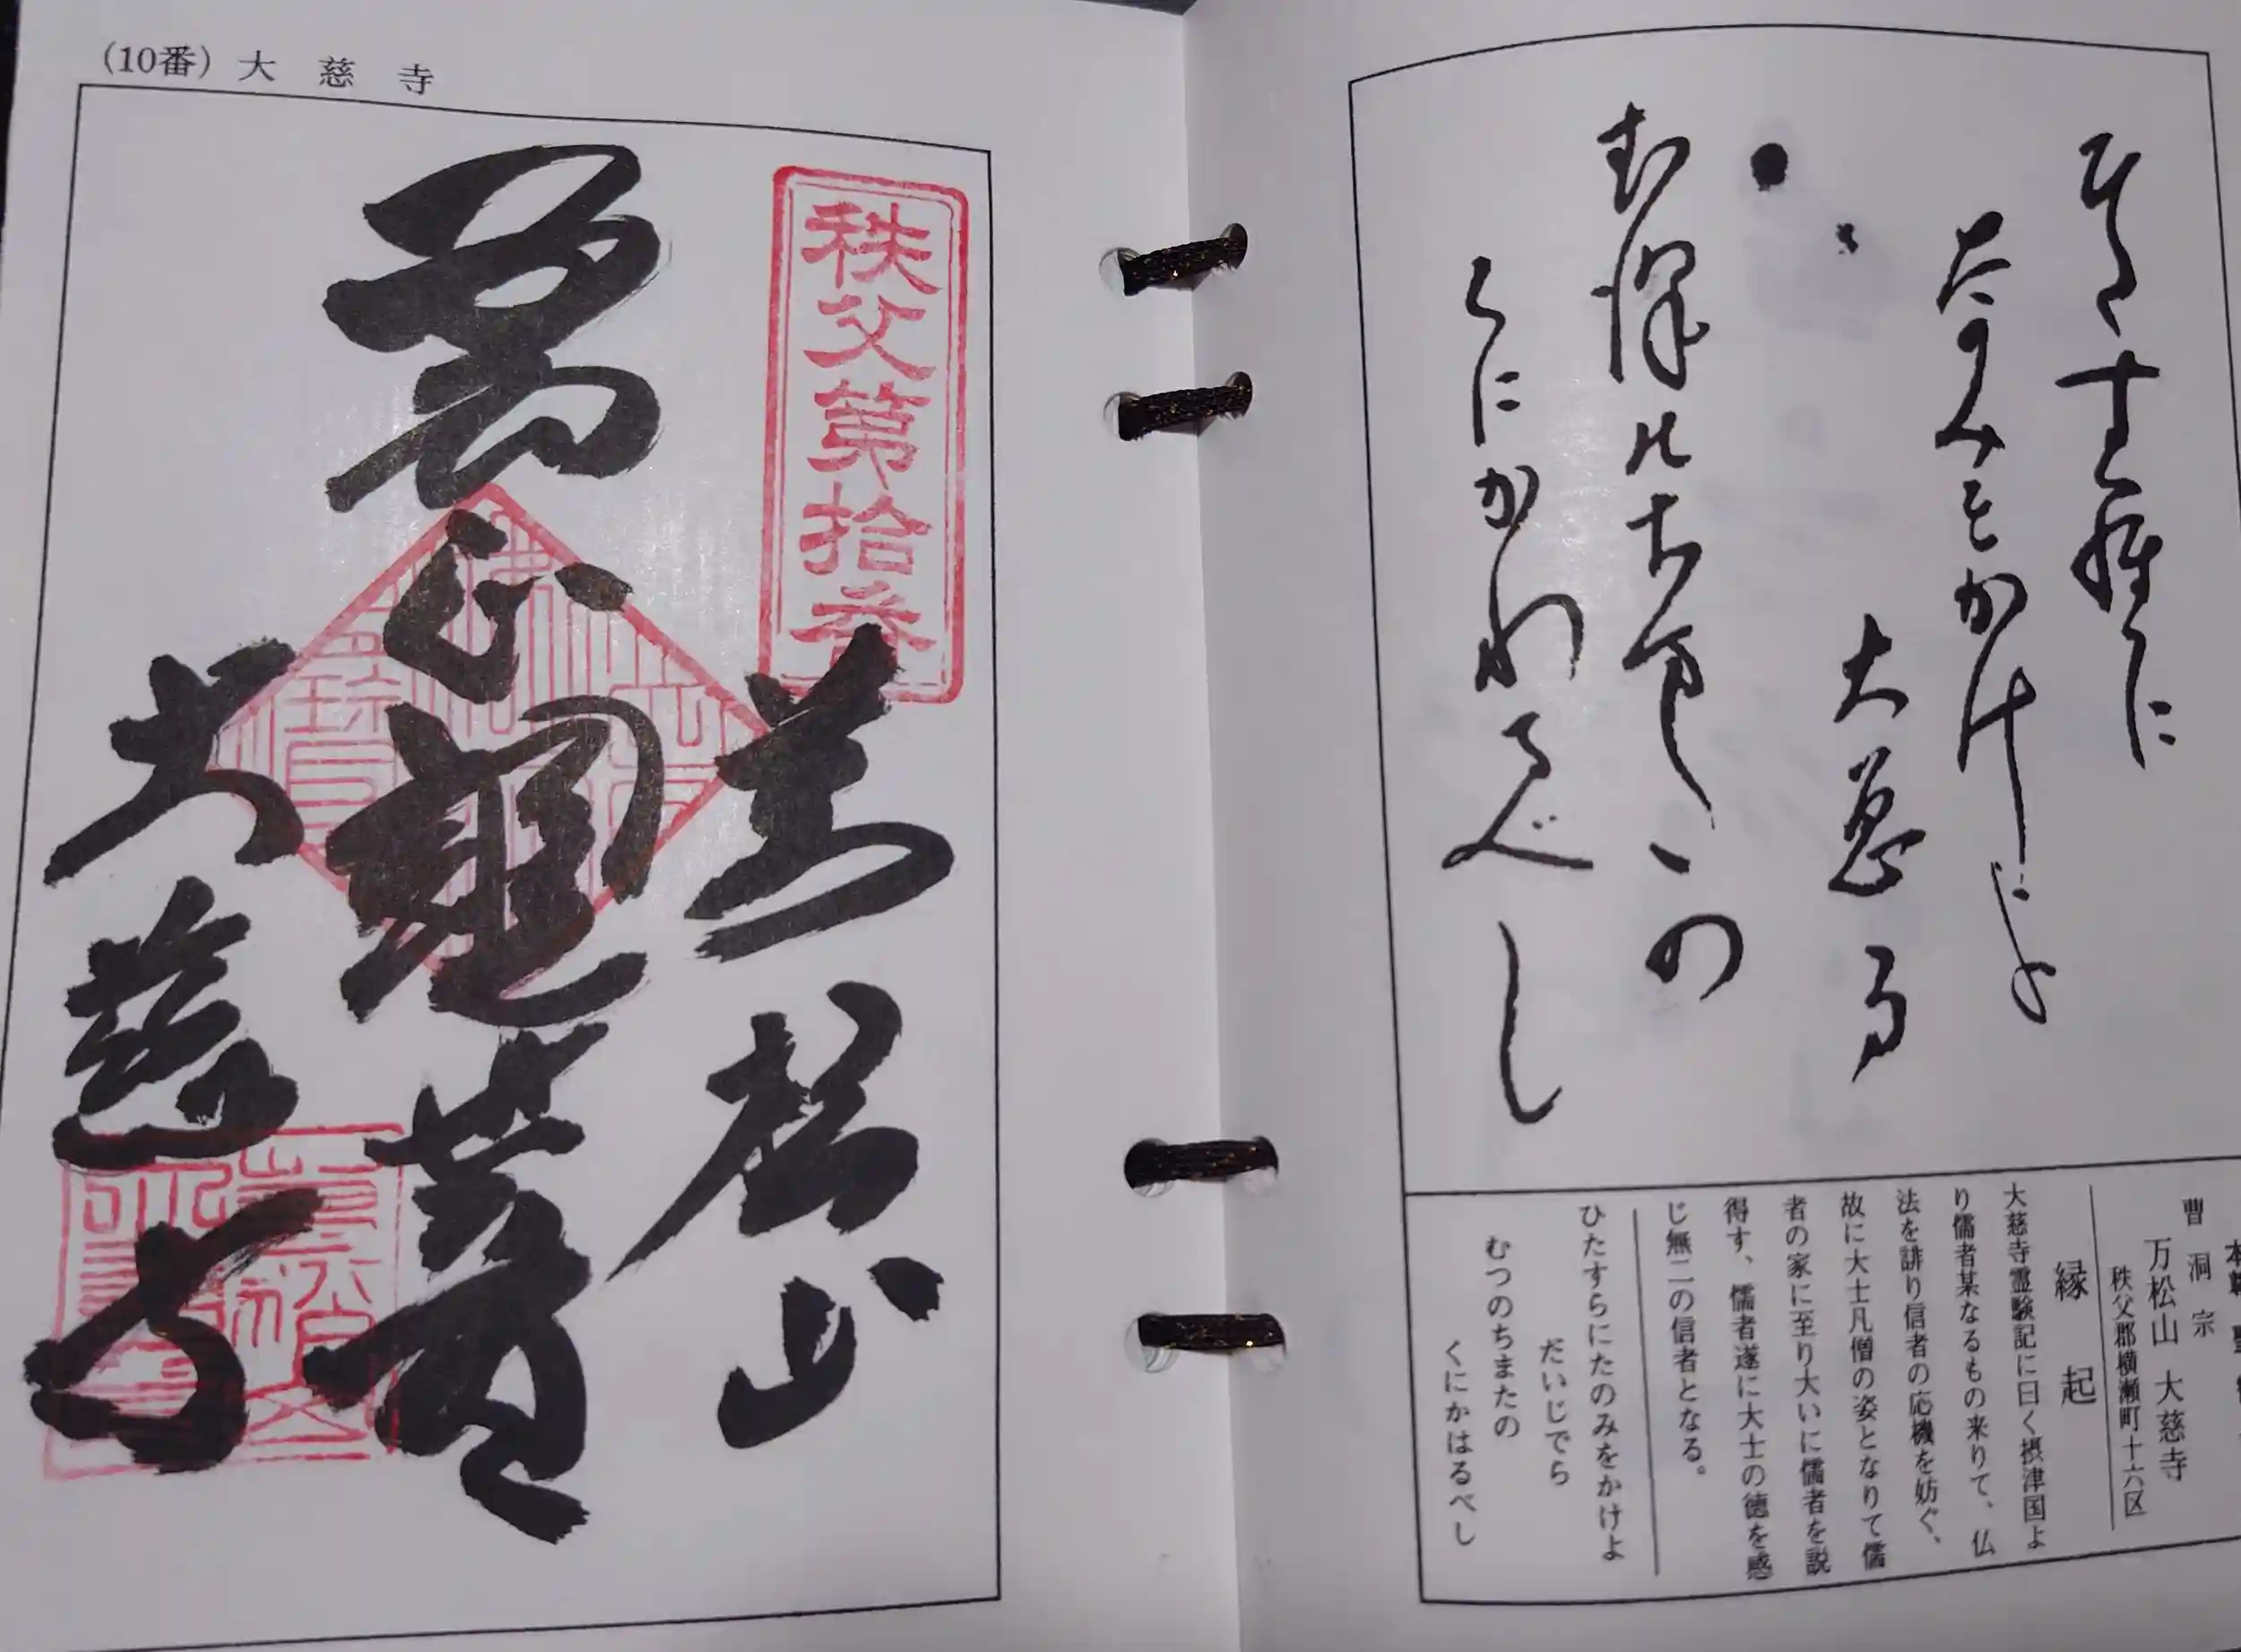 (10番) 大慈寺
秩父第拾番
萬松山
聖観世音
大慈寺
たのみをかけよ
大慈寺
くにかわるべし
曹洞宗
万松山 大慈寺
秩父郡横瀬町十六区
縁起
大慈寺霊験記に曰く摂津国よ
り儒者某なるもの来りて、仏
法を誹り信者の応機を妨ぐ、
故に大士凡僧の姿となりて儒
者の家に至り大いに儒者を説
得す、儒者遂に大士の徳を感
じ無二の信者となる。
ひたすらにたのみをかけよ
だいじでら
むつのちまたの
くにかはるべし